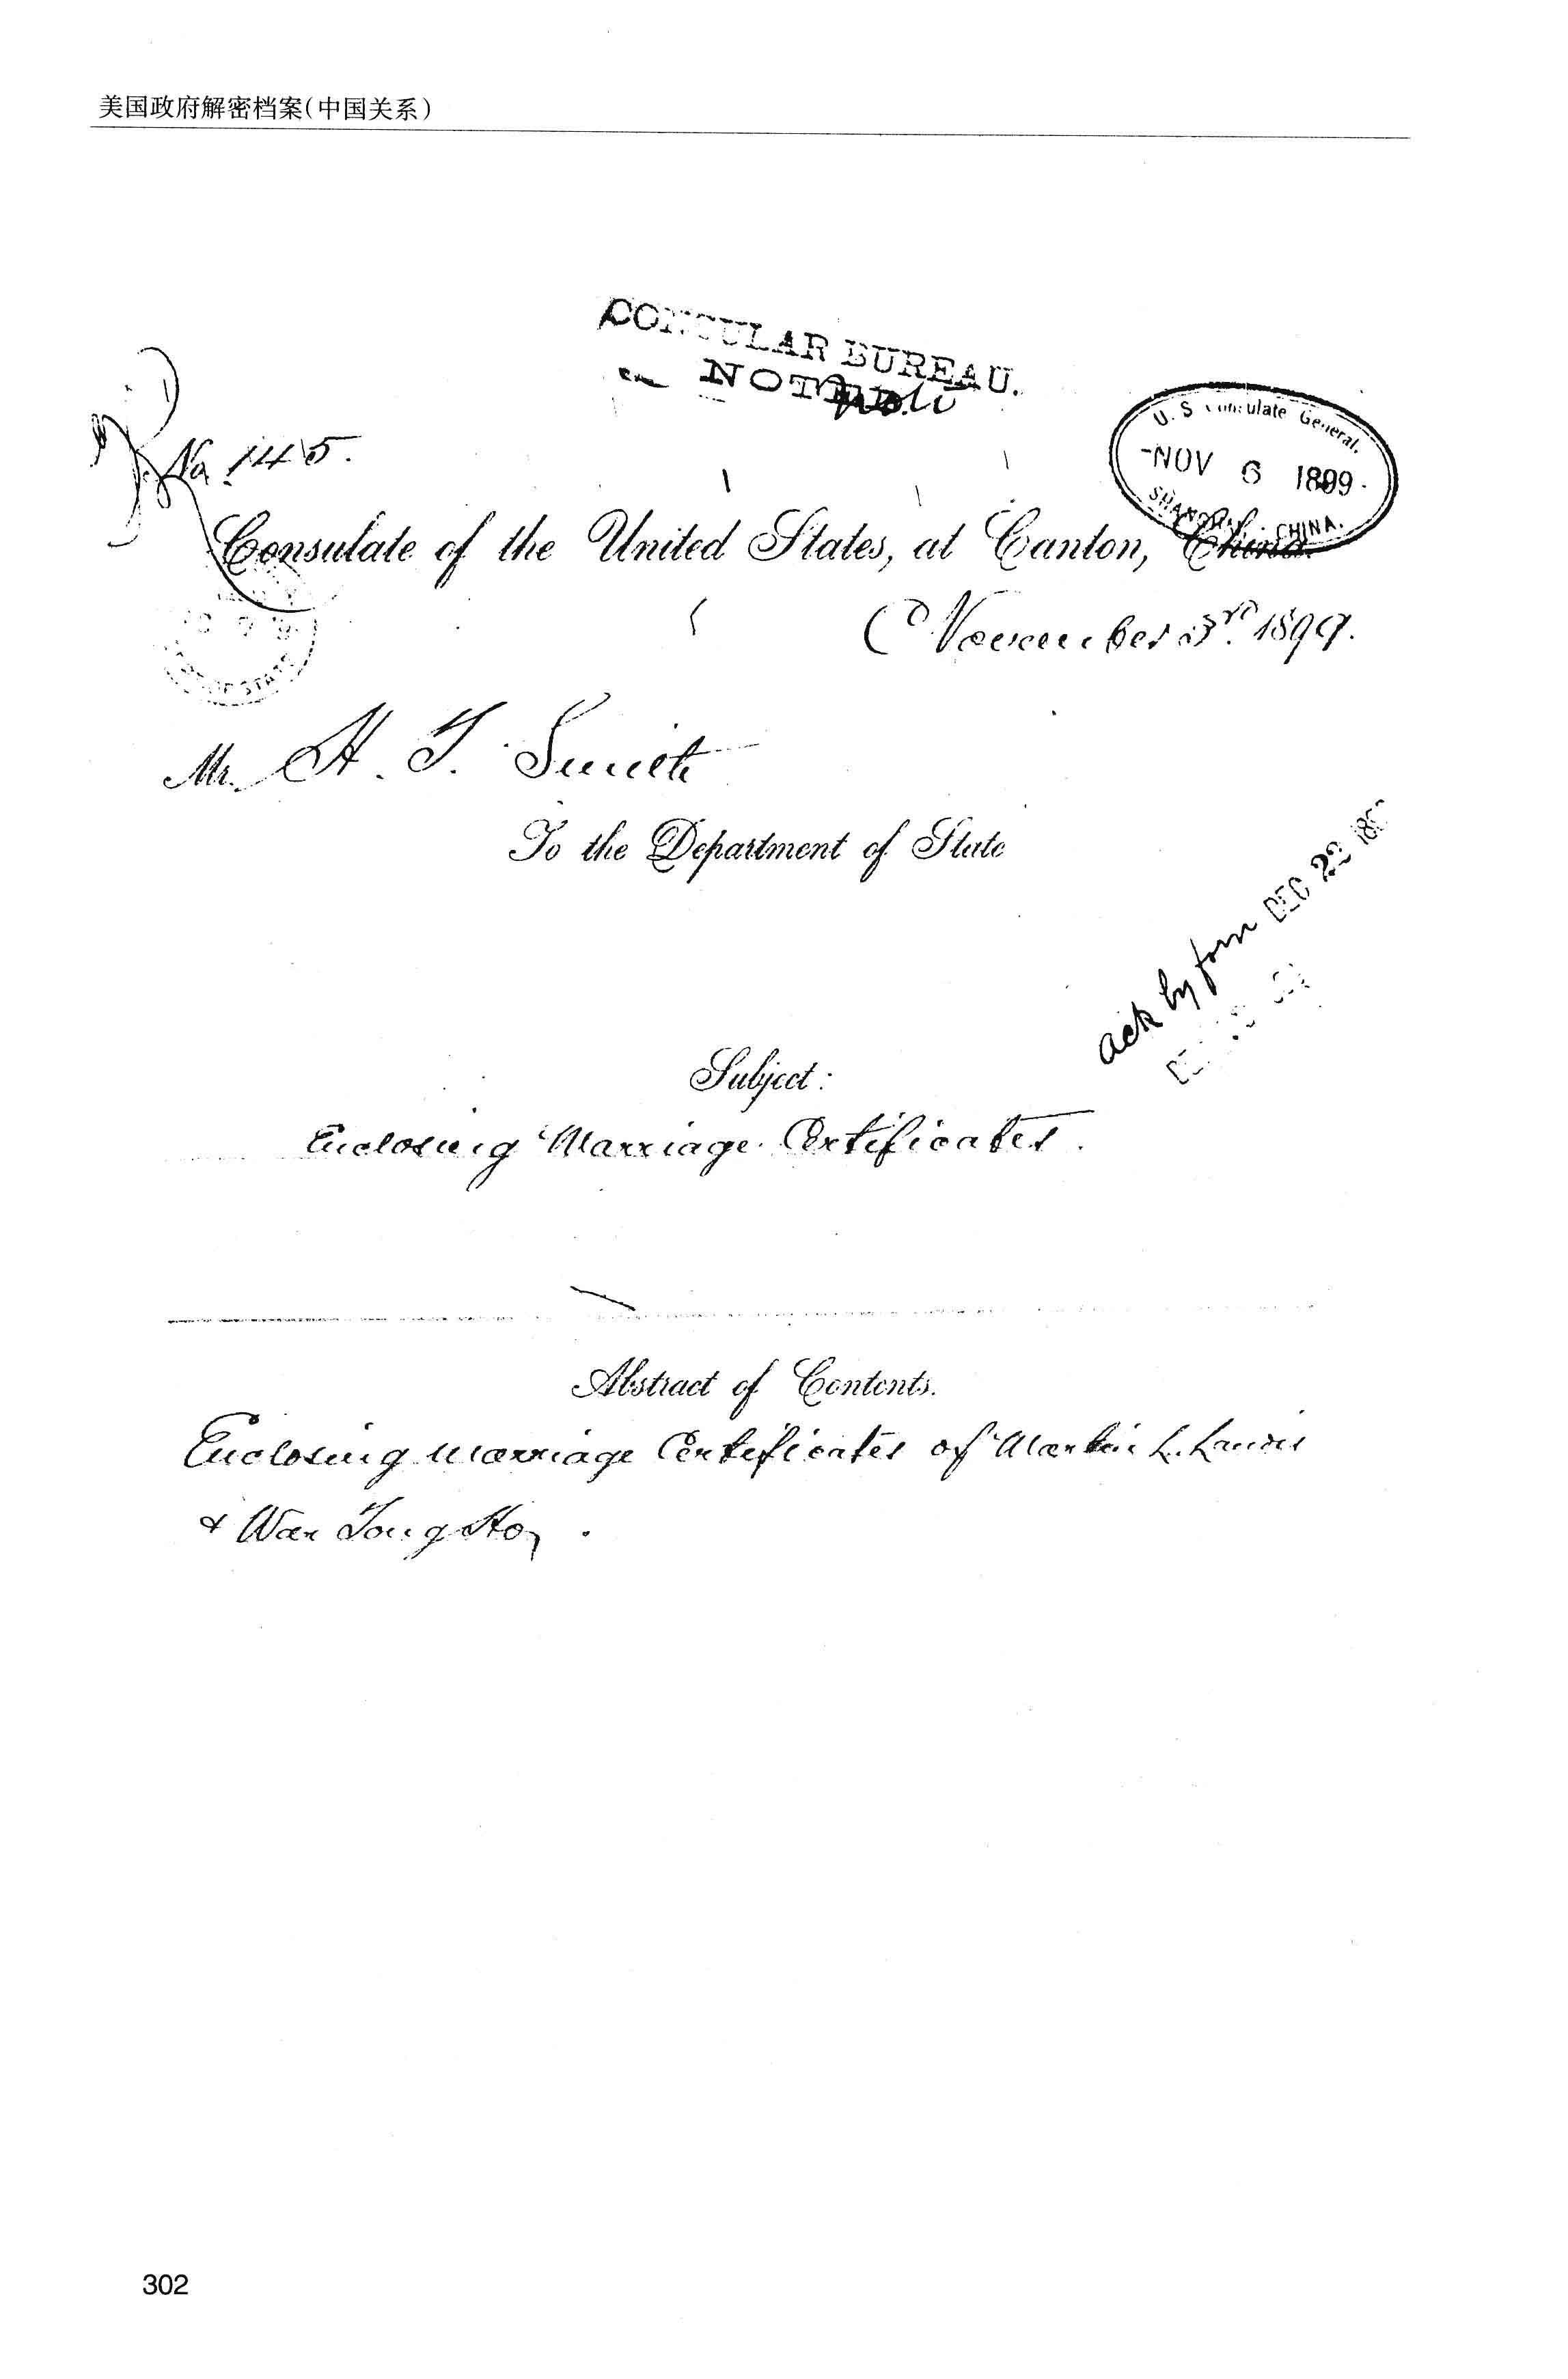 美国政府解密档案(中国关系)
CONSULAR BUREAU.
NOTED.
No. 145.
U. S. Consulate General.
NOV 6 1899
SHANGHAI, CHINA.
Consulate of the United States, at Canton, China.
November 3rd. 1899.
Mr. H. T. Smith
To the Department of State
ack by form DEC 22 18
Subject:
Enclosing Marriage Certificates.
Abstract of Contents.
Enclosing Marriage Certificates of Martin L. Landis
& Wan Tong Ho.
302